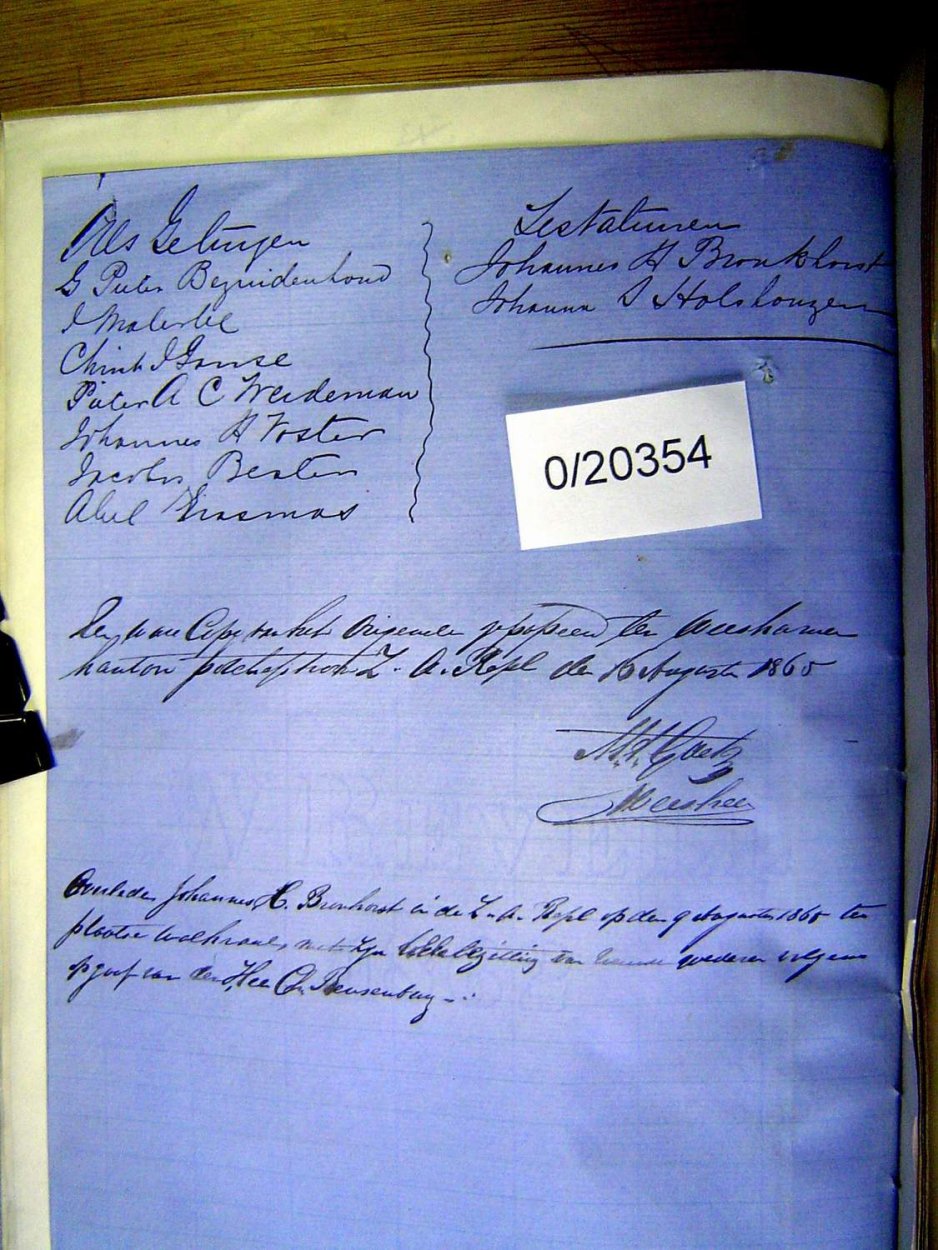 Als Getuigen
G Pieter Bezuidenhoud
J Malerbe
Pieter A C Weideman
Johannes H Voster
Jacobus Bester
Abel Erasmus
Testateuren
Johannes H Bronkhorst
Johanna S Holshouzen
0/20354
Een ware Copy van het Origeneele gepasseerd ter Weeskamer
kantoor Z. A. Repl den 16 Augusta 1865
Weesheer
Overleden Johannes H. Bronhorst in de Z. A. Repl op den 9 Augusta 1865 ter
plaatse met zyn goederen volgens
opgaaf van den Heer